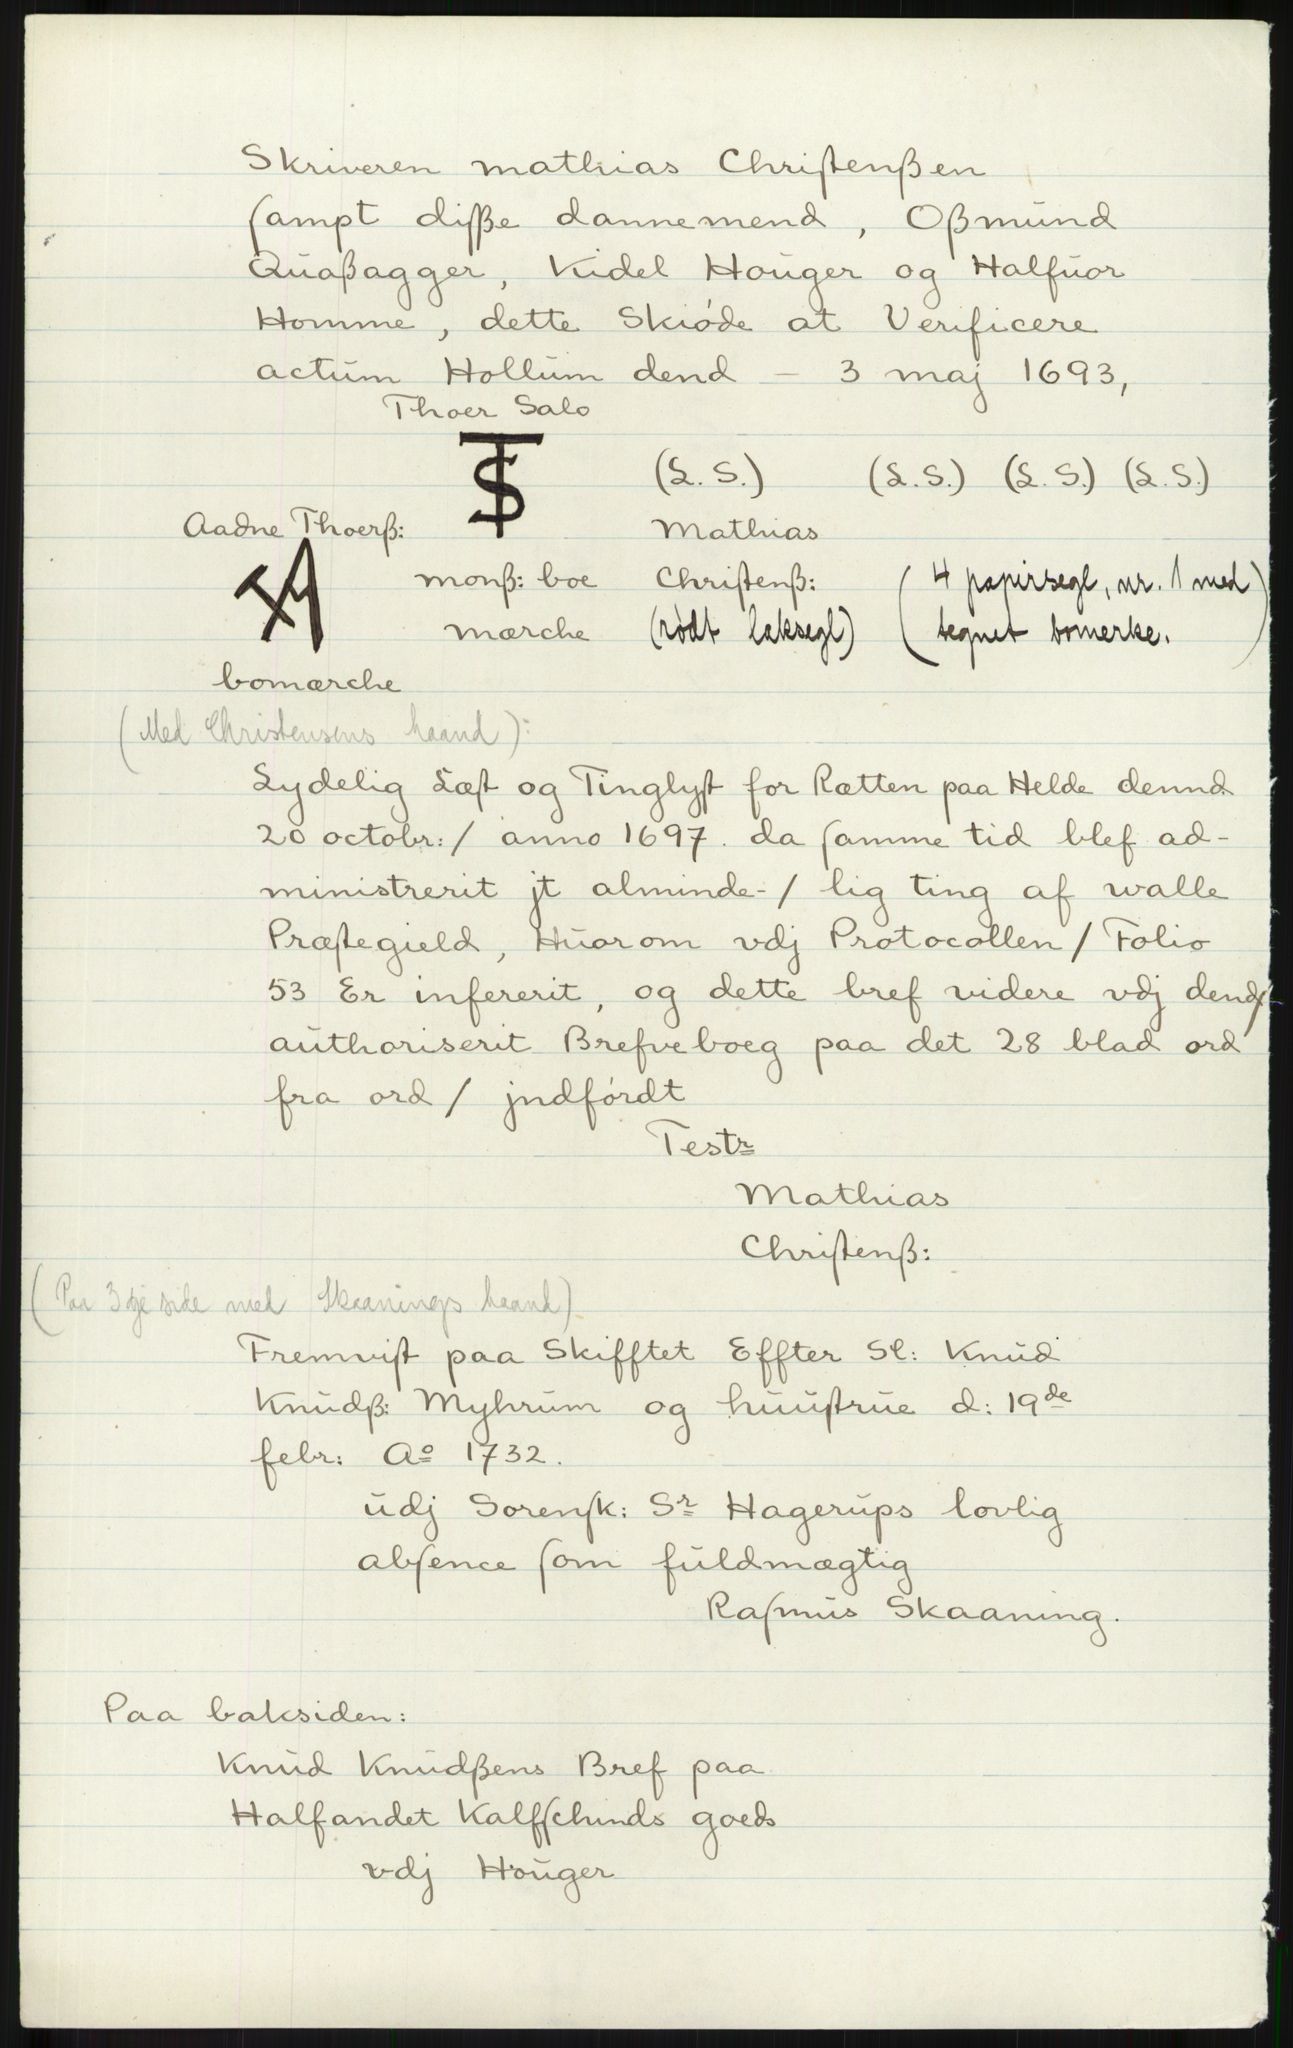 Skriveren mathias Chriſtenßen
ſampt diſße dannemend, Oßmund
Quaßagger, Kidel Houger og Halfuor
Homme, dette Skiøde at Verificere
actum Hollum dend – 3 maj 1693,
Thoer Salo
(L. S.) (L. S.) (L. S.) (L. S.)
Aadne Thoerß: Mathias
monß: boe Chriſtenß: (4 papirsegl, nr. 1 med)
mærche (rødt laksegl) (tegnet bomerke.
bomærche
(Med Christensens haand):
Lydelig Læſt og Tinglyſt for Rætten paa Helde dennd
20 octobr:/ anno 1697. da ſamme tid blef ad-
ministrerit jt alminde-/ lig ting af walle
Præſtegield, Huorom vdj Protocollen / Folio
53 Er inſererit, og dette bref videre vdj dend/
authoriserit Brefveboeg paa det 28 blad ord
fra ord / jndførdt
Testr
Mathias
Chriſtenß:
(Paa 3dje side med Skaanings haand)
Fremviſt paa Skifftet Effter Sl: Knud
Knudß: Myhrum og huuſtrue d: 19de
febr: Ao 1732.
udj Sorenſk: Sr Hagerups lovlig
abſence ſom fuldmægtig
Raſmus Skaaning.
Paa baksiden:
Knud Knudßens Bref paa
Halfandet Kalfſchinds goeds
vdj Houger